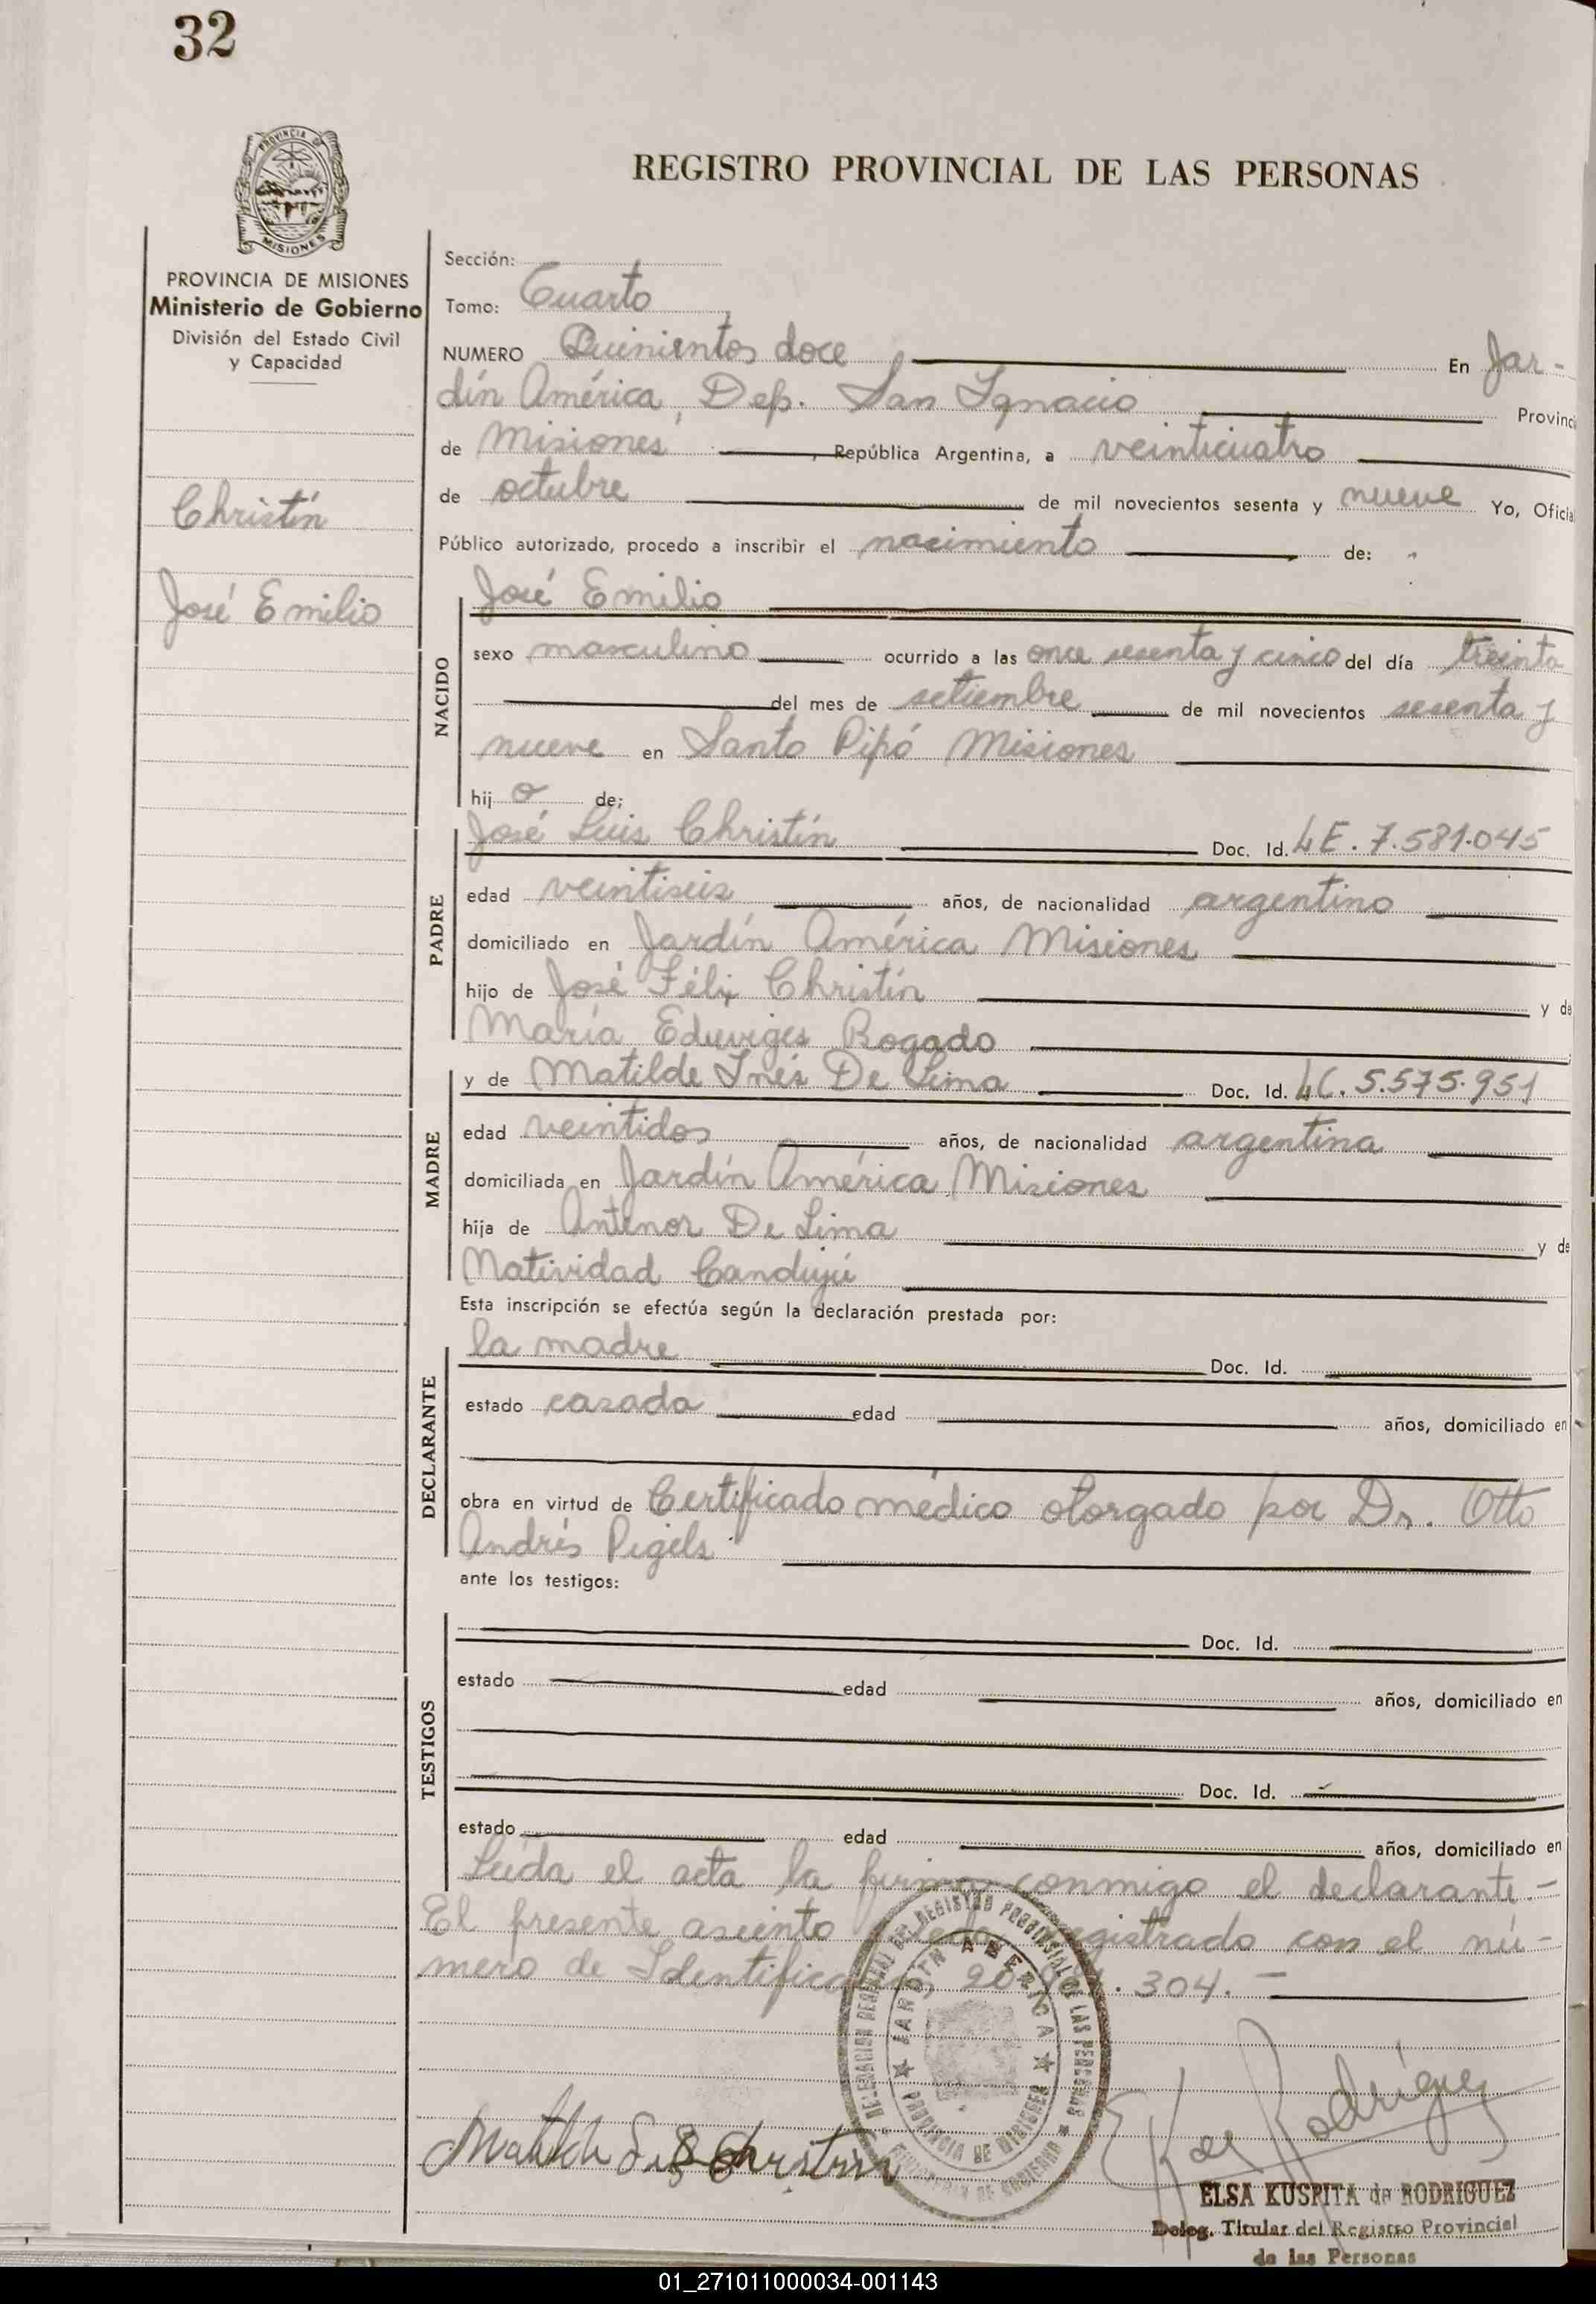 32
PROVINCIA DE
MISIONES
REGISTRO PROVINCIAL DE LAS PERSONAS
PROVINCIA DE MISIONES
Ministerio de Gobierno
División del Estado Civil
y Capacidad
Christín
José Emilio
Sección:
Tomo: Cuarto
NUMERO Quinientos doce En Jar-
dín América, Dep. San Ignacio Provinci
de Misiones, República Argentina, a veinticuatro
de octubre de mil novecientos sesenta y nueve Yo, Oficia
Público autorizado, procedo a inscribir el nacimiento de:
NACIDO
José Emilio
sexo masculino ocurrido a las once sesenta y cinco del día treinta
del mes de setiembre de mil novecientos sesenta y
nueve en Santo Pipó Misiones
hijo de;
PADRE
José Luis Christín Doc. Id. LE. 7.581.045
edad veintiseis años, de nacionalidad argentino
domiciliado en Jardín América Misiones
hijo de José Félix Christín y de
María Eduviges Rogado
MADRE
y de Matilde Inés De Lima Doc. Id. LC. 5.575.951
edad veintidos años, de nacionalidad argentina
domiciliada en Jardín América Misiones
hija de Antenor De Lima y de
Natividad Candujú
Esta inscripción se efectúa según la declaración prestada por:
DECLARANTE
la madre Doc. Id.
estado casada edad años, domiciliado en
obra en virtud de Certificado médico otorgado por Dr. Otto
Andrés Pigels
ante los testigos:
TESTIGOS
Doc. Id.
estado edad años, domiciliado en
Doc. Id.
estado edad años, domiciliado en
Leída el acta la firma conmigo el declarante.-
El presente asiento queda registrado con el nú-
mero de Identificación 304.-
JARDIN AMERICA
PROVINCIA DE MISIONES
Rodríguez
ELSA KUSPITA de RODRIGUEZ
Deleg. Titular del Registro Provincial
de las Personas
01_271011000034-001143